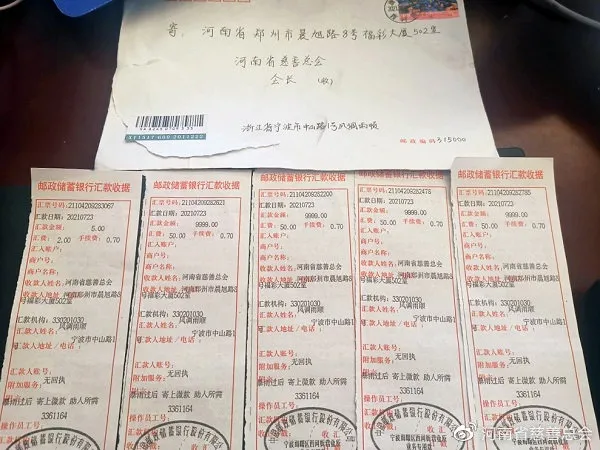 寄: 河南省郑州市晨旭路8号福彩大厦502室
河南省慈善总会
会长 (收)
浙江省宁波市中山路1号风调雨顺
邮政编码315000
邮政储蓄银行汇款收据
汇票号码:21104209283067
汇款日期:20210723
汇款金额: 5.00
汇费: 2.00 手续费: 0.70
汇入账户:
商户号:
商户名称:
收款人姓名:河南省慈善总会
收款人地址:河南郑州市晨旭路8
号福彩大厦502室
汇款机构:330201030
汇款人姓名: 风调雨顺
汇款人地址/电话: 宁波市中山路1
号
汇款人账号:
附加服务: 无回执
暴雨过后 寄上微款 助人所需
操作员号: 3361164
邮政储蓄银行汇款收据
汇票号码:21104209282621
汇款日期:20210723
汇款金额: 9999.00
汇费: 50.00 手续费: 0.70
汇入账户:
商户号:
商户名称:
收款人姓名:河南省慈善总会
收款人地址:河南郑州市晨旭路8
号福彩大厦502室
汇款机构:330201030
汇款人姓名: 风调雨顺
汇款人地址/电话: 宁波市中山路1
号
汇款人账号:
附加服务: 无回执
暴雨过后 寄上微款 助人所需
操作员号: 3361164
邮政储蓄银行汇款收据
汇票号码:21104209282200
汇款日期:20210723
汇款金额: 9999.00
汇费: 50.00 手续费: 0.70
汇入账户:
商户号:
商户名称:
收款人姓名:河南省慈善总会
收款人地址:河南郑州市晨旭路8
号福彩大厦502室
汇款机构:330201030
汇款人姓名: 风调雨顺
汇款人地址/电话: 宁波市中山路1
号
汇款人账号:
附加服务: 无回执
暴雨过后 寄上微款 助人所需
操作员号: 3361164
邮政储蓄银行汇款收据
汇票号码:21104209282478
汇款日期:20210723
汇款金额: 9999.00
汇费: 50.00 手续费: 0.70
汇入账户:
商户号:
商户名称:
收款人姓名:河南省慈善总会
收款人地址:河南郑州市晨旭路8
号福彩大厦502室
汇款机构:330201030
汇款人姓名: 风调雨顺
汇款人地址/电话: 宁波市中山路1
号
汇款人账号:
附加服务: 无回执
暴雨过后 寄上微款 助人所需
操作员号: 3361164
邮政储蓄银行汇款收据
汇票号码:21104209282785
汇款日期:20210723
汇款金额: 9999.00
汇费: 50.00 手续费: 0.70
汇入账户:
商户号:
商户名称:
收款人姓名:河南省慈善总会
收款人地址:河南郑州市晨旭路8
号福彩大厦502室
汇款机构:330201030
汇款人姓名: 风调雨顺
汇款人地址/电话: 宁波市中山路1
号
汇款人账号:
附加服务: 无回执
暴雨过后 寄上微款 助人所需
操作员号: 3361164
@河南省慈善总会